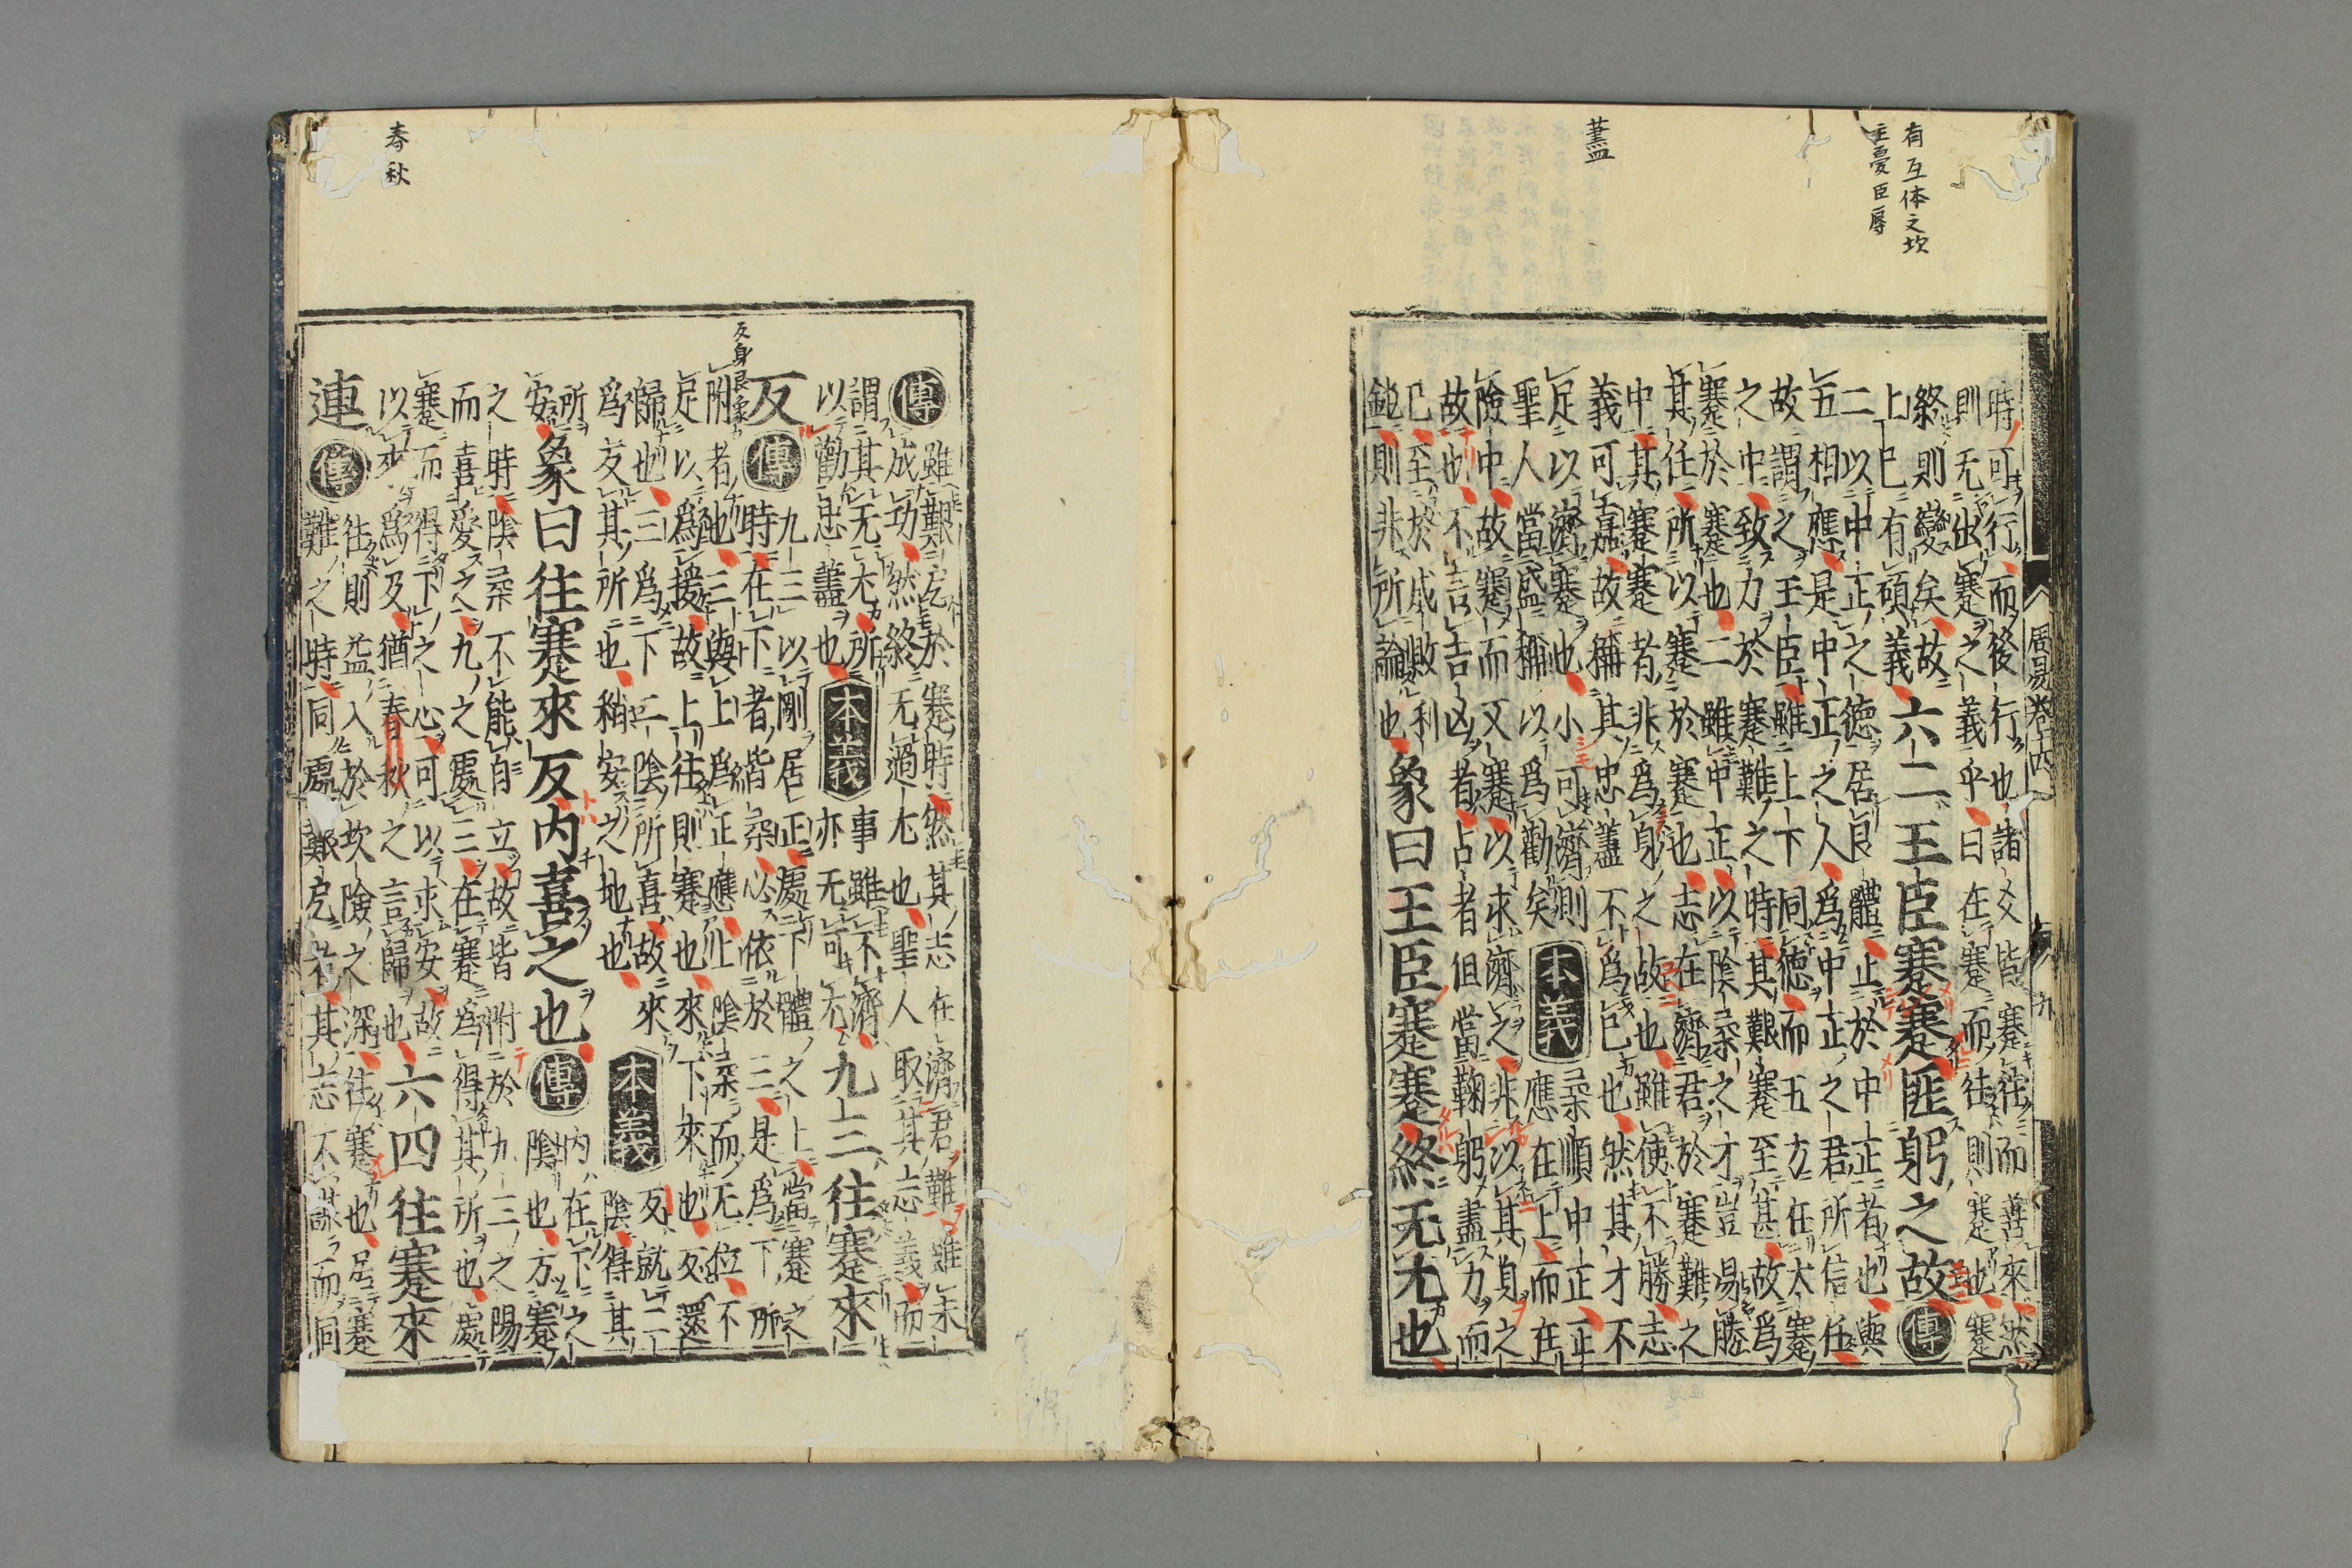 有互体之坎
主憂臣辱
藎
時可行而後行也諸爻皆蹇往而善來然
則无出蹇之義乎曰在蹇而往則蹇也蹇
終則變矣故
上已有碩義
六二王臣蹇蹇匪躬之故傳
二以中正之德居艮體止於中正者也與
五相應是中正之人爲中正之君所信任
故謂之王臣雖上下同德而五方在大蹇
之中致力於蹇難之時其艱蹇至甚故爲
蹇於蹇也二雖中正以陰柔之才豈易勝
其任所以蹇於蹇也志在濟君於蹇難之
中其蹇蹇者非爲身之故也雖使不勝志
義可嘉故稱其忠藎不爲己也然其才不
足以濟蹇也小可濟則
聖人當盛稱以爲勸矣
本義
柔順中正正
應在上而在
險中故蹇而又蹇以求濟之非以其身之
故也不言吉凶者占者但當鞠躬盡力而
已至於成敗利
鈍則非所論也
象曰王臣蹇蹇終无尤也
周易卷十四
春秋
反身艮象
傳
雖艱厄於蹇時然其志在濟君難雖未
成功然終无過尤也聖人取其志義而
謂其无尤所
以勸忠藎也
本義
事雖不濟
亦无可尤
九三往蹇來
反傳
九三以剛居正處下體之上當蹇之
時在下者皆柔必依於三是爲下所
附者也三與上爲正應上陰柔而无位不
足以爲援故上往則蹇也來下來也反還
歸也三爲下二陰所喜故來
爲反其所也稍安之地也
本義
反就二
陰得其
所
安
象曰往蹇來反內喜之也傳
內在下之
陰也方蹇
之時陰柔不能自立故皆附於九三之陽
而喜愛之九之處三在蹇爲得其所也處
蹇而得下之心可以求安故
以來爲反猶春秋之言歸也
六四往蹇來
連傳
往則益入於坎險之深往蹇也居蹇
難之時同處艱厄者其志不謀而同